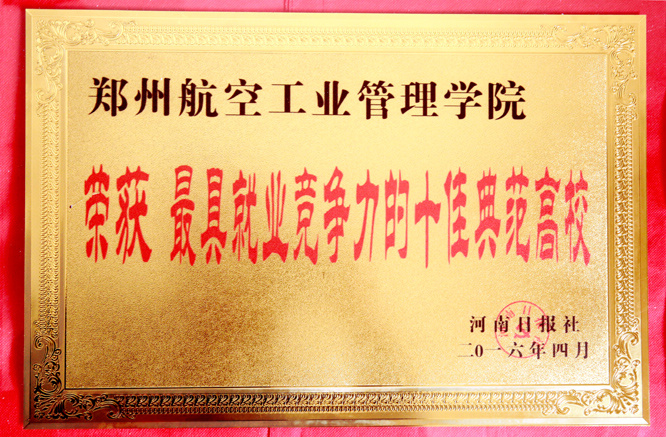 郑州航空工业管理学院
荣获 最具就业竞争力的十佳典范高校
河南日报社
二0一六年四月